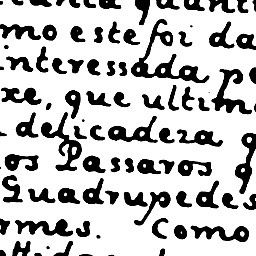 mo este foi da
interessada pe
xe, que ultim
delicadeza q
os Passaros q
Quadrupedes
rmes. Como